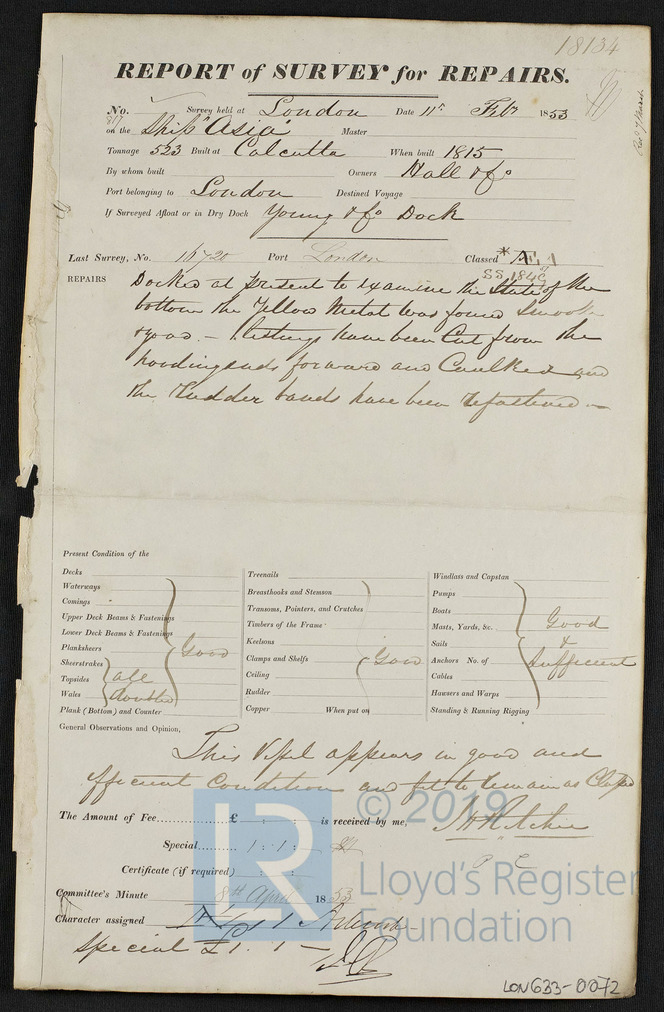 18134
REPORT of SURVEY for REPAIRS.
No. Survey held at London Date 11th Feby 1853
on the Ship "Asia" Master
Tonnage 523 Built at Calcutta When built 1815
By whom built Owners Hall & Co
Port belonging to London Destined Voyage
If Surveyed Afloat or in Dry Dock Young & Co Dock
Last Survey, No. 16720 Port London Classed * Æ 1
SS. 184
REPAIRS Docked at present to examine the State of the
bottom the Yellow Metal was found Smooth
& good. — Listings have been Cut from the
hooding ends forward and Caulked and
the Rudder bands have been refastened —
Present Condition of the
Decks
Waterways
Comings
Upper Deck Beams & Fastenings
Lower Deck Beams & Fastenings
Planksheers Good
Sheerstrakes
Topsides all
Wales doubled
Plank (Bottom) and Counter
Treenails
Breasthooks and Stemson
Transoms, Pointers, and Crutches
Timbers of the Frame
Keelsons
Clamps and Shelfs Good
Ceiling
Rudder
Copper When put on
Windlass and Capstan
Pumps
Boats
Masts, Yards, &c. Good
Sails &
Anchors No. of Sufficient
Cables
Hawsers and Warps
Standing & Running Rigging
General Observations and Opinion,
This Vessel appears in good and
efficient Condition and fit to remain as Classed
The Amount of Fee £ : : is received by me,
Special 1 : 1 :
Certificate (if required) : :
Committee's Minute 8th April 1853
Character assigned Æ 1
Special £1. 1 —
© 2019
Lloyd's Register
Foundation
LR
LON633-0072